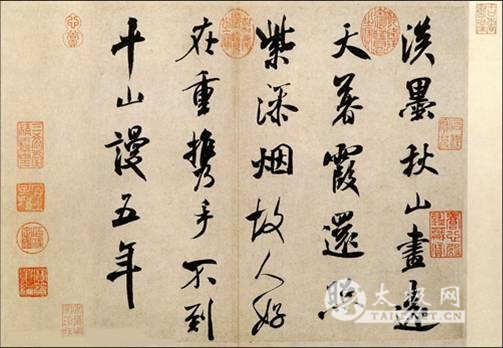 淡墨秋山畫遠
天暮霞還照
紫添烟故人好
在重攜手不到
平山謾五年
太极网
TAIJI.NET.CN